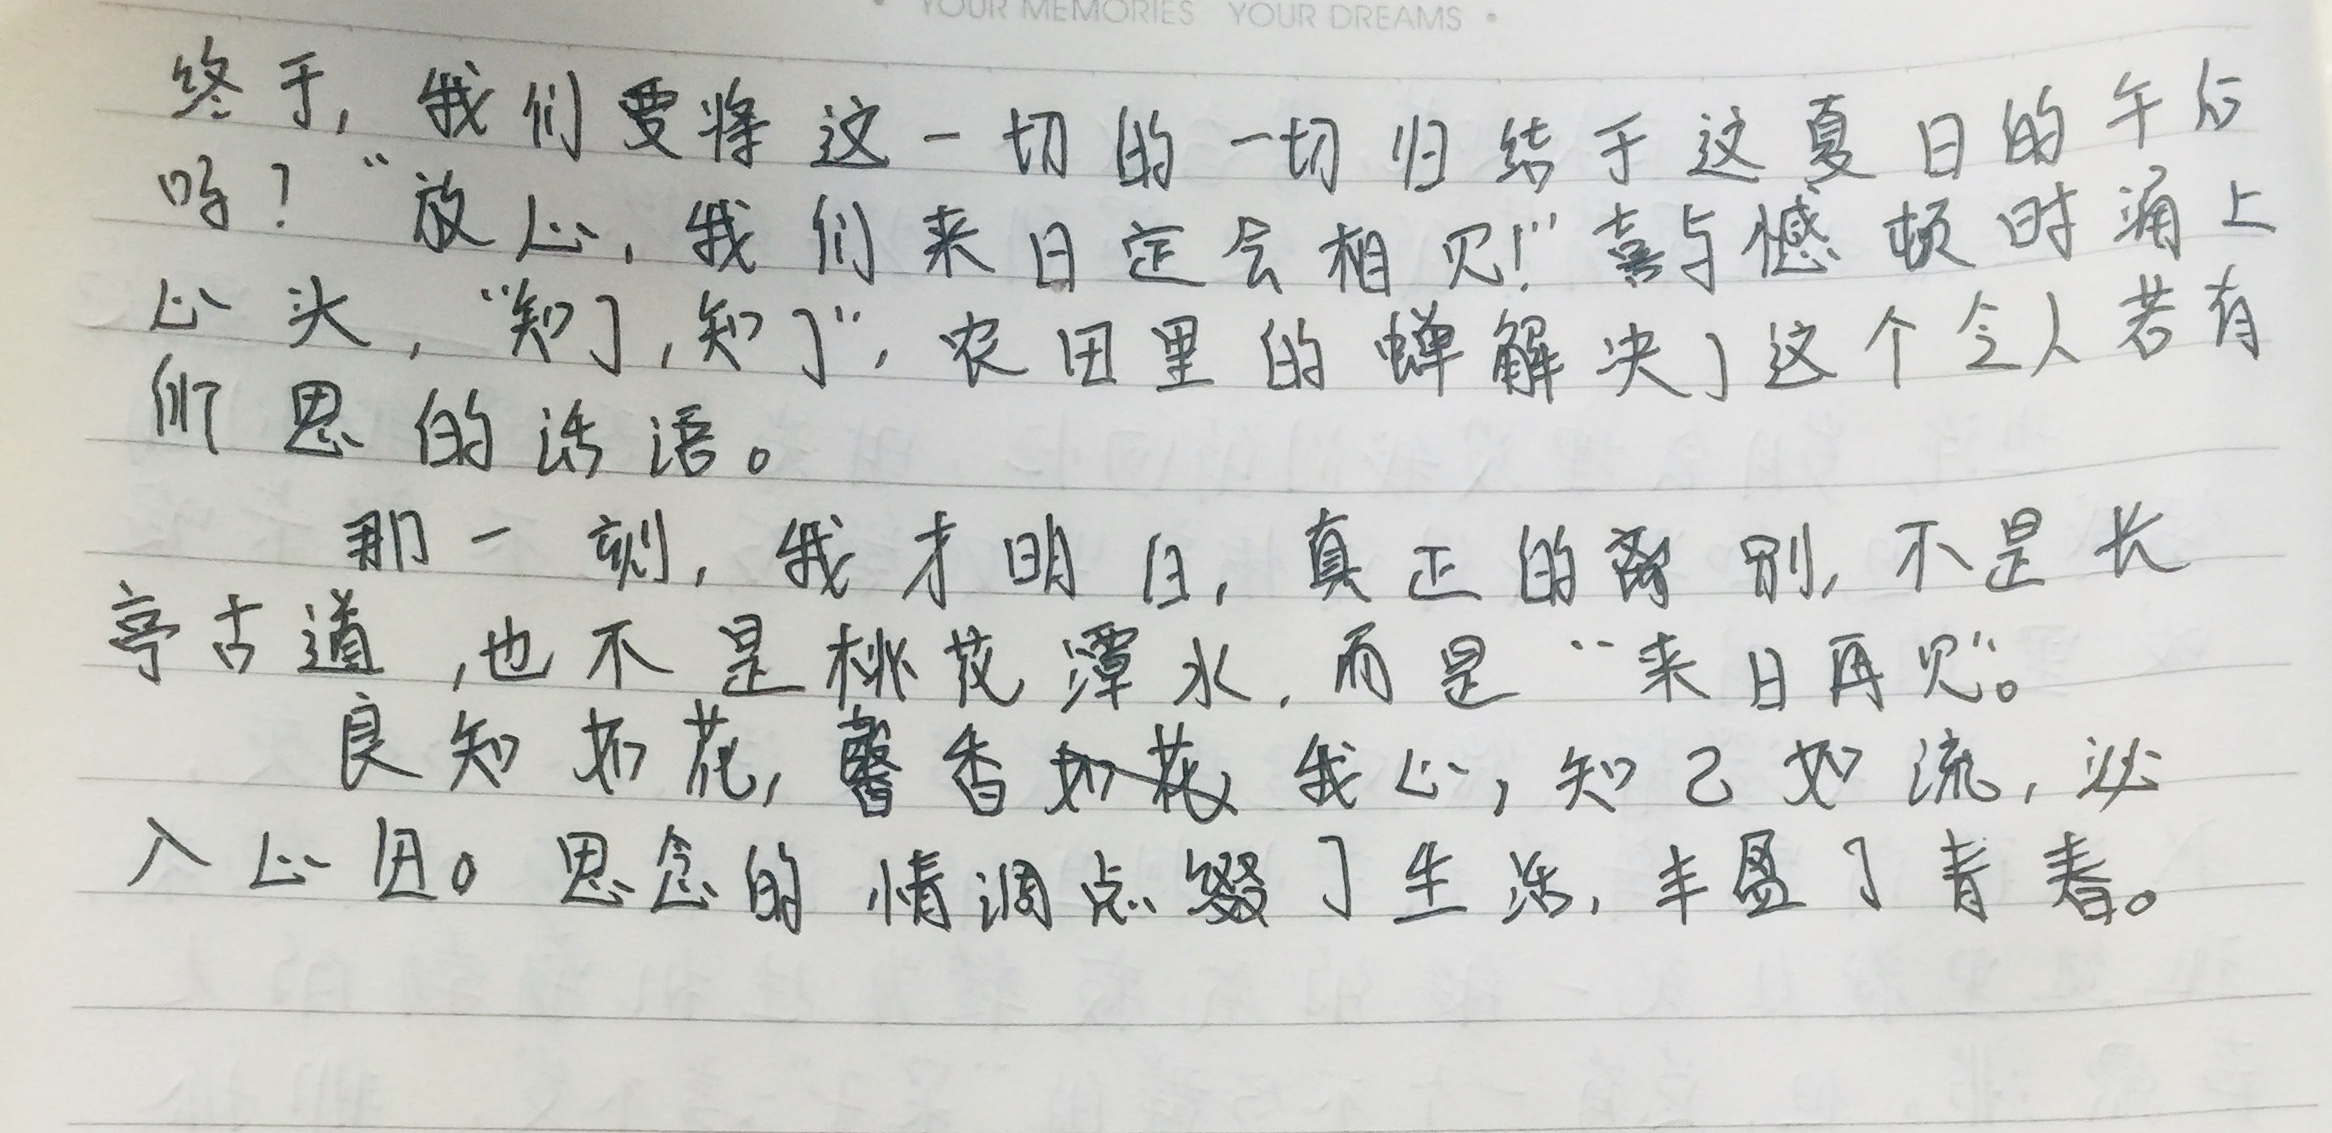 YOUR MEMORIES YOUR DREAMS
终于，我们要将这一切的一切归结于这夏日的午后
吗？“放心，我们来日定会相见！”喜与憾顿时涌上
心头，“知了，知了”，农田里的蝉解决了这个令人若有
所思的话语。
那一刻，我才明白，真正的离别，不是长
亭古道，也不是桃花潭水，而是“来日再见”。
良知如花，馨香我心，知己如流，沁
入心田。思念的情调点缀了生活，丰盈了青春。